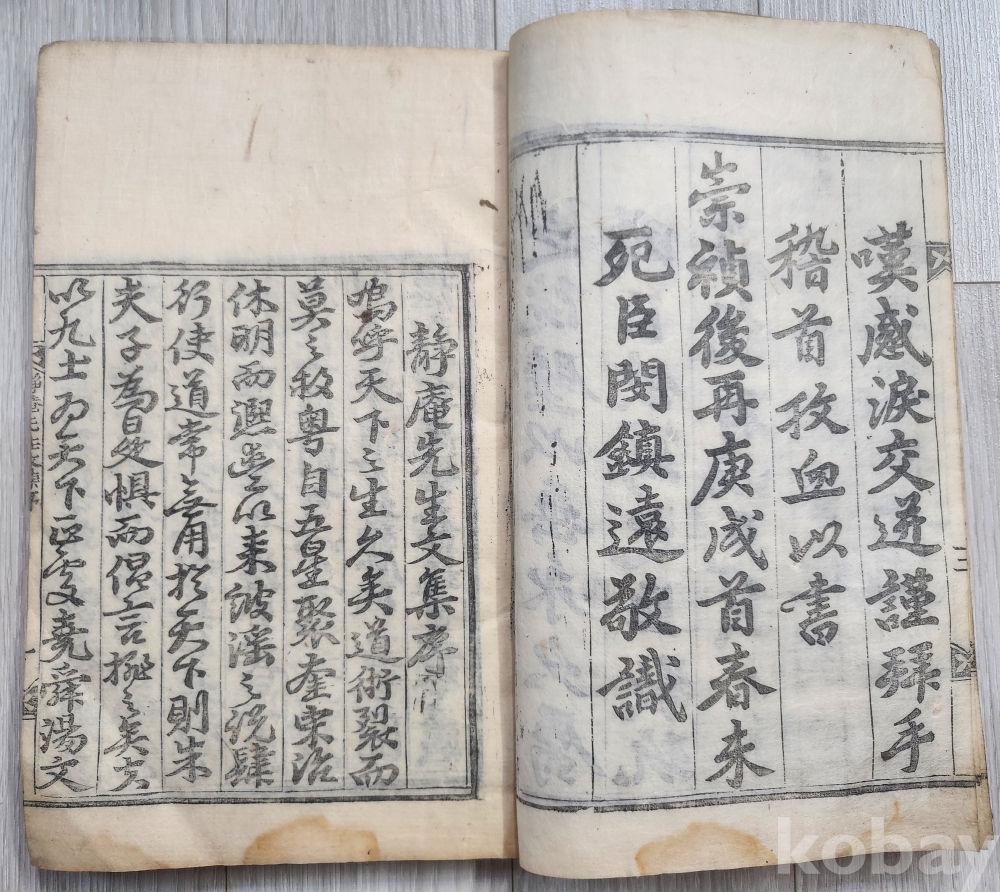 嘆感淚交迸謹拜手
稽首攷血以書
崇禎後再庚戌首春未
死臣閔鎮遠敬識
三
靜庵先生文集序
嗚呼天下之生久矣道術裂而
莫之救粵自五星聚奎宋治
休明而濂
以來
波淫之說肆
行使道常無用於天下則朱
夫子為是懼而倡言排之矣夫
以九土為天下正支堯舜湯文
kobay